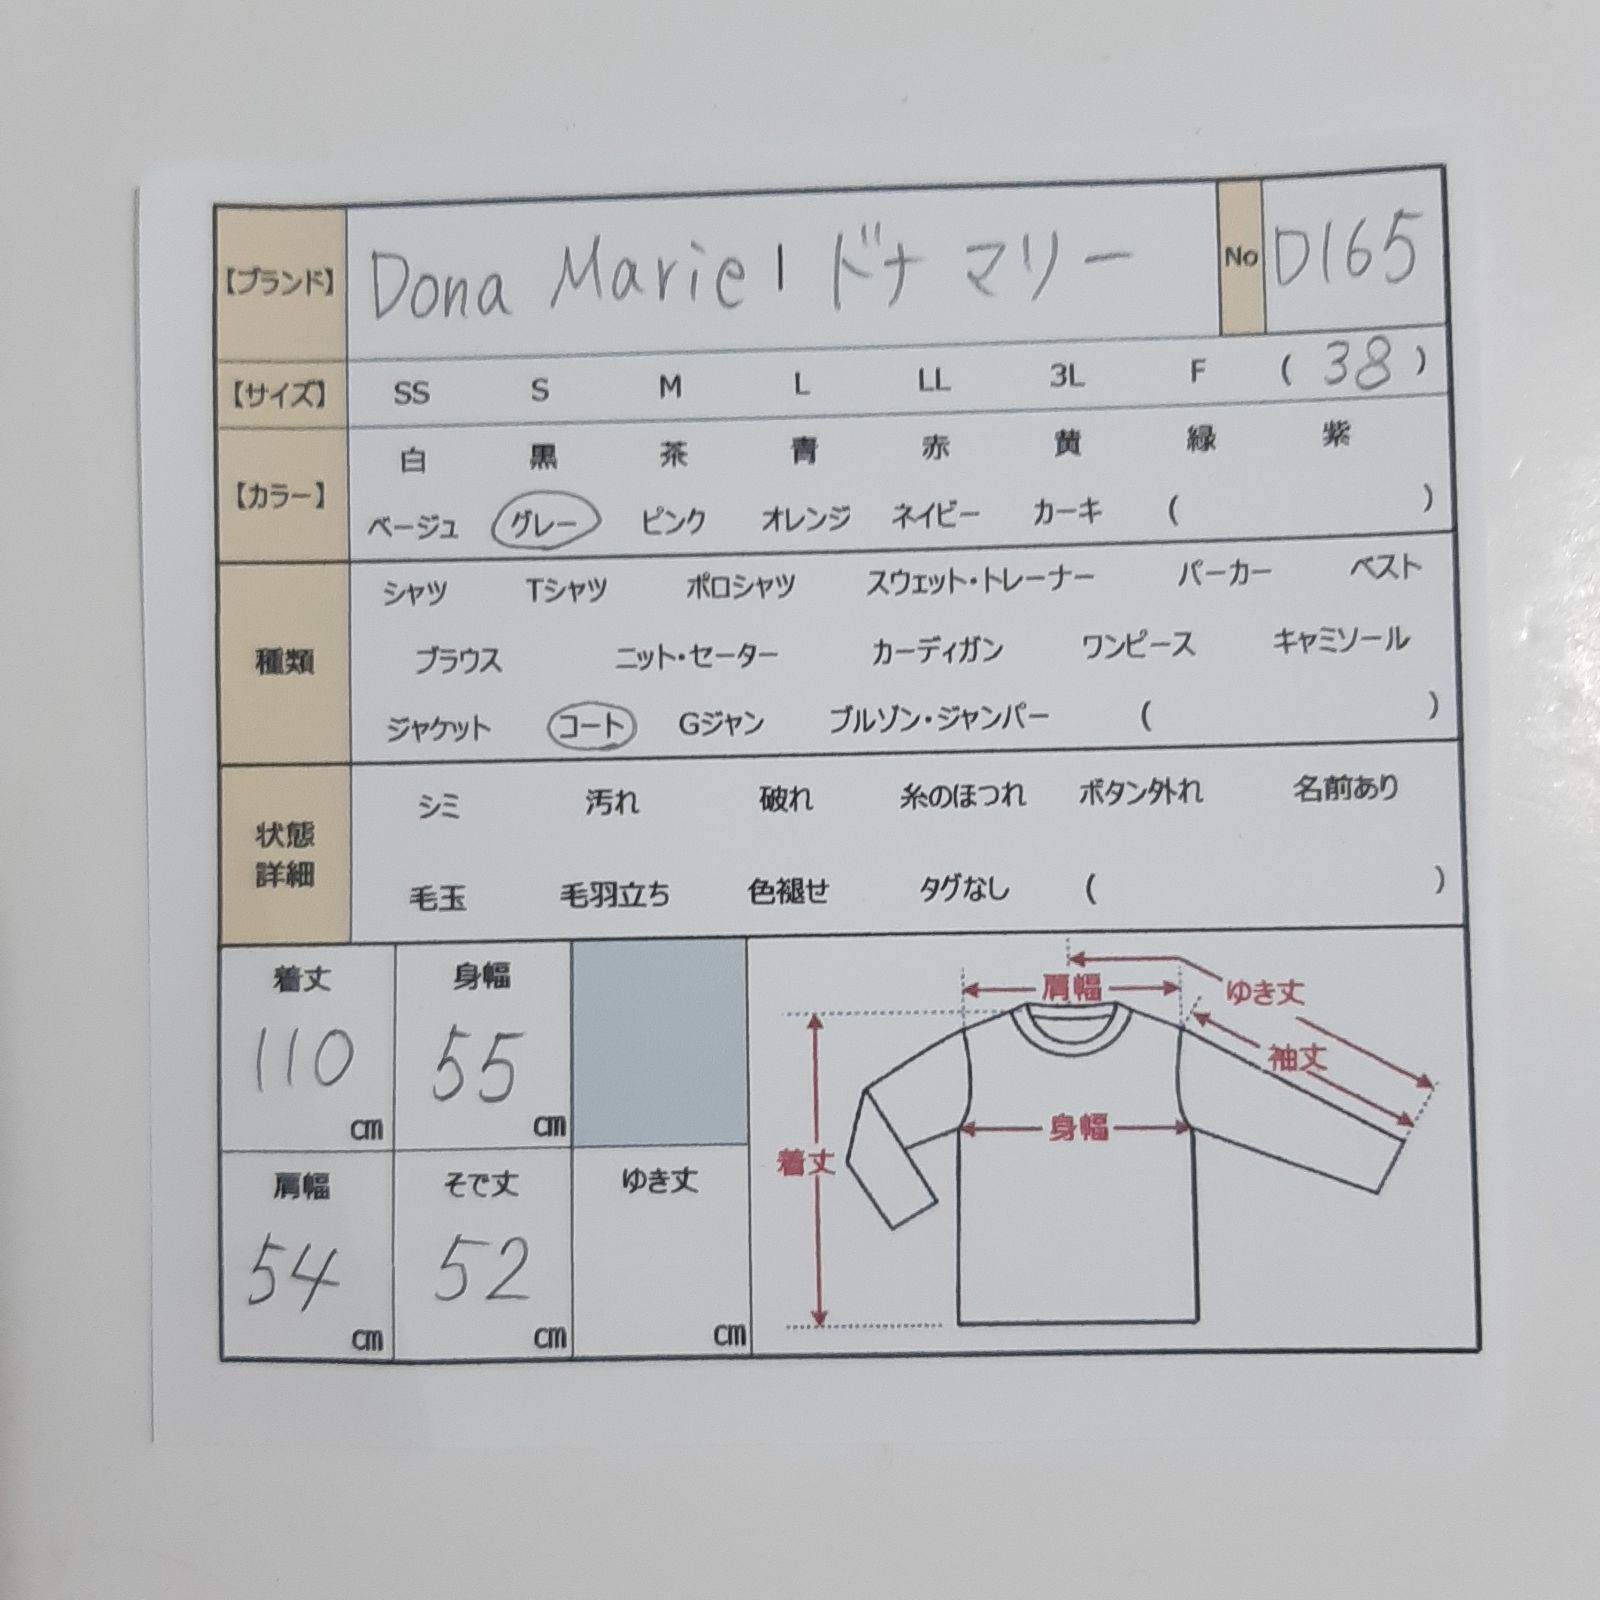 【ブランド】 Dona Marie | ドナ マリー No D165
【サイズ】 SS S M L LL 3L F ( 38 )
【カラー】 白 黒 茶 青 赤 黄 緑 紫
ベージュ グレー ピンク オレンジ ネイビー カーキ ( )
種類 シャツ Tシャツ ポロシャツ スウェット・トレーナー パーカー ベスト
ブラウス ニット・セーター カーディガン ワンピース キャミソール
ジャケット コート Gジャン ブルゾン・ジャンパー ( )
状態
詳細
シミ 汚れ 破れ 糸のほつれ ボタン外れ 名前あり
毛玉 毛羽立ち 色褪せ タグなし ( )
着丈 身幅
110 55
cm cm
肩幅 そで丈 ゆき丈
54 52
cm cm cm
肩幅
ゆき丈
袖丈
身幅
着丈